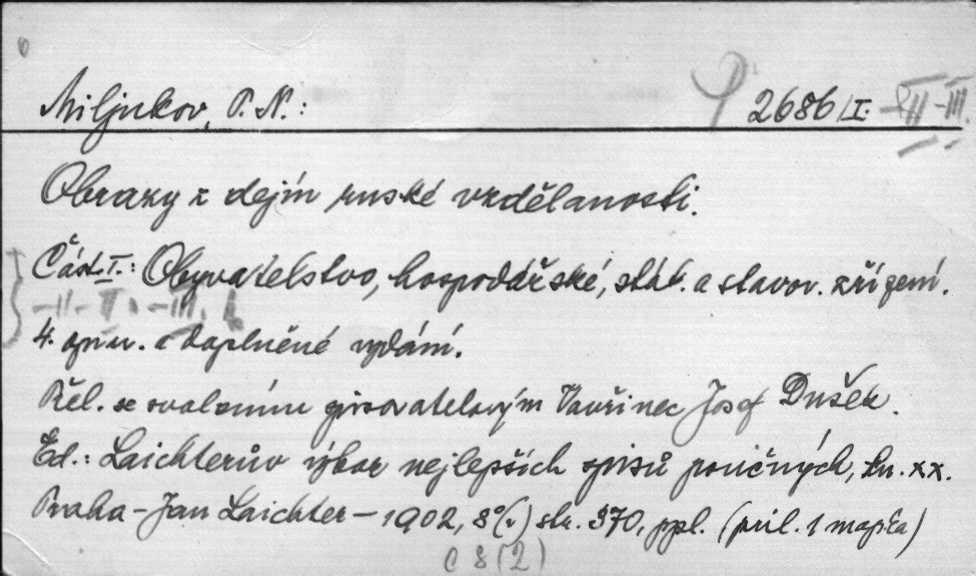 Miljukov, P. N.: 2686/I. -II -III.
Obrazy z dejín ruské vzdělanosti.
Část I.: Obyvatelstvo, hospodářské, stát. a stavov. zřízení.
-II- II. -III.
4. oprav. a doplněné vydání.
Přel. se svolením spisovatelovým Vavřinec Josef Dušek.
Ed.: Laichterův výbor nejlepších spisů poučných, kn. XX.
Praha - Jan Laichter - 1902, 8° (v) str. 370, ppl. (pril. 1 mapka)
C 8 (2)